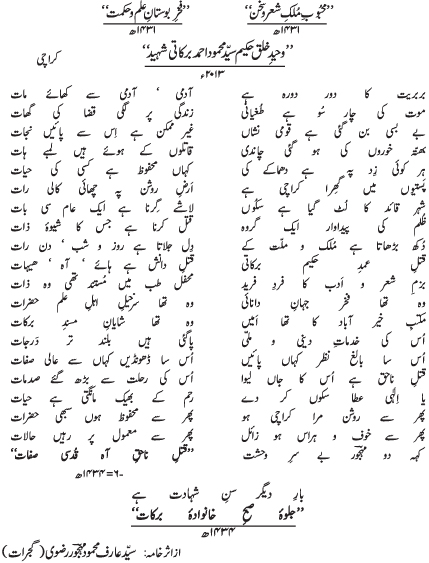 ”محبوبِ مُلکِ شعر و سخن“ ”فخرِ بوستانِ علم و حکمت“
۱۴۳۱ھ ۱۴۳۱ھ
”وحیدِ خلق حکیم سیّد محمود احمد برکاتی شہید“
کراچی
۲۰۱۳ء
بربریت کا دور دورہ ہے آدمی ، آدمی سے کھائے مات
موت کی چار سُو ہے طغیانی زندگی پر لگی قضا کی گھات
بے بسی بن گئی ہے قومی نشاں غیر ممکن ہے اِس سے پائیں نجات
بھتہ خوروں کی ہو گئی چاندی قاتلوں کے ہوئے ہیں لمبے ہات
ہر کوئی زد پہ ہے دھماکے کی کہاں محفوظ ہے کسی کی حیات
پستیوں میں گِھرا کراچی ہے ارضِ روشن پہ چھائی کالی رات
شہرِ قائد کا لُٹ گیا ہے سکوں لاشے گِرنا ہے ایک عام سی بات
ظلم کی پیداوار ایک گروہ قتل کرنا ہے جس کا شیوۂ ذات
دُکھ بڑھاتا ہے مُلک و ملّت کے دِل جلاتا ہے روز و شب ، دن رات
قتلِ عمدِ حکیم برکاتی قتلِ دانش ہے ہائے ، آہ ، ھیہات
بزمِ شعر و ادب کا فردِ فرید محفلِ طب میں مُستند تھی وہ ذات
وہ تھا فخرِ جہانِ دانائی وہ تھا سرخیلِ اہلِ علم حضرات
مکتبِ خیر آباد کا تھا امیں وہ تھا شایانِ مسندِ برکات
اُس کی خدماتِ دینی و ملّی پا گئی ہیں بلند تر درجات
اُس سا بالغ نظر کہاں پائیں اُس سا ڈھونڈیں کہاں سے عالی صفات
قتلِ ناحق ہے اُس کا جاں لیوا اُس کی رحلت سے بڑھ گئے صدمات
یا الٰہی عطا سکوں کر دے رحم کے بھیک مانگتی ہے حیات
پھر سے روشن مرا کراچی ہو پھر سے محفوظ ہوں سبھی حضرات
پھر سے خوف و ہراس ہو زائل پھر سے معمول پر رہیں حالات
کہہ دو مہجورؔ بے سرِ وحشت ”قتلِ ناحق آہ قدسی صفات“
-۶=۱۴۳۴ھ
بارِ دیگر سنِ شہادت ہے
”جلوۂ صحِ خانوادۂ برکات“
۱۴۳۴ھ
از اثرِ خامہ: سیّد عارف محمود مہجورؔ رضوی (گجرات)